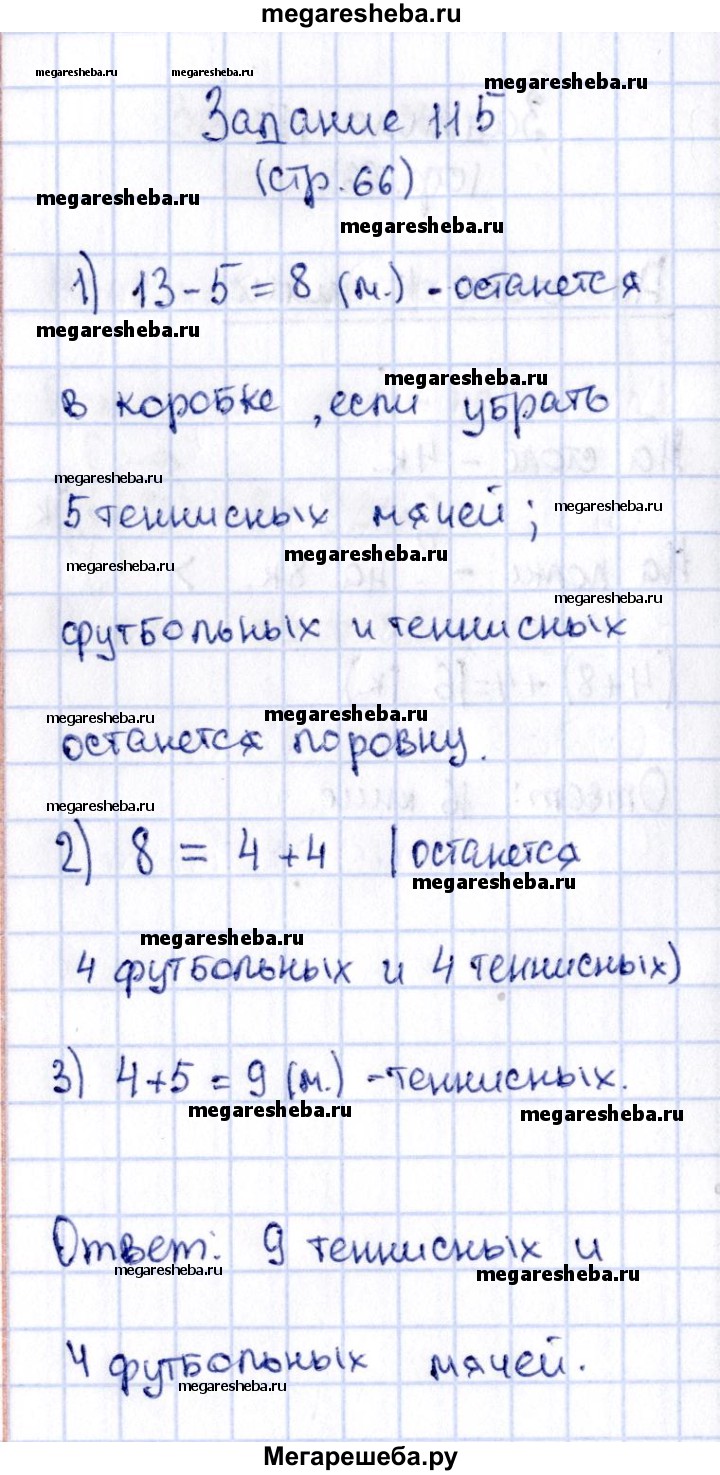 megaresheba.ru
megaresheba.ru megaresheba.ru megaresheba.ru
Задание 115
(стр. 66)
megaresheba.ru
megaresheba.ru
1) 13 - 5 = 8 (м.) - останется
megaresheba.ru
megaresheba.ru
в коробке, если убрать
megaresheba.ru
5 теннисных мячей;
megaresheba.ru
megaresheba.ru
megaresheba.ru
megaresheba.ru
футбольных и теннисных
megaresheba.ru
megaresheba.ru
останется поровну.
megaresheba.ru
2) 8 = 4 + 4 (останется
megaresheba.ru
megaresheba.ru
4 футбольных и 4 теннисных)
3) 4 + 5 = 9 (м.) - теннисных.
megaresheba.ru
megaresheba.ru
Ответ: 9 теннисных и
megaresheba.ru
megaresheba.ru
4 футбольных мячей.
megaresheba.ru
Мегарешеба.ру